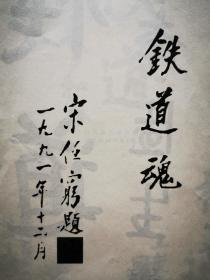 鉄道魂
宋任窮題
一九九一年十二月